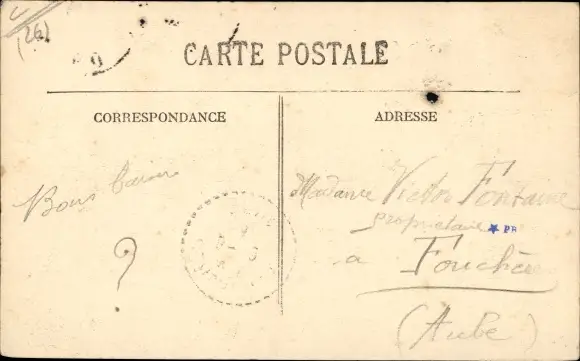 (26)
CARTE POSTALE
CORRESPONDANCE
ADRESSE
Bons baisers
?
Madame Victor Fontaine
propriétaire
PB
a Fouchères
(Aube)